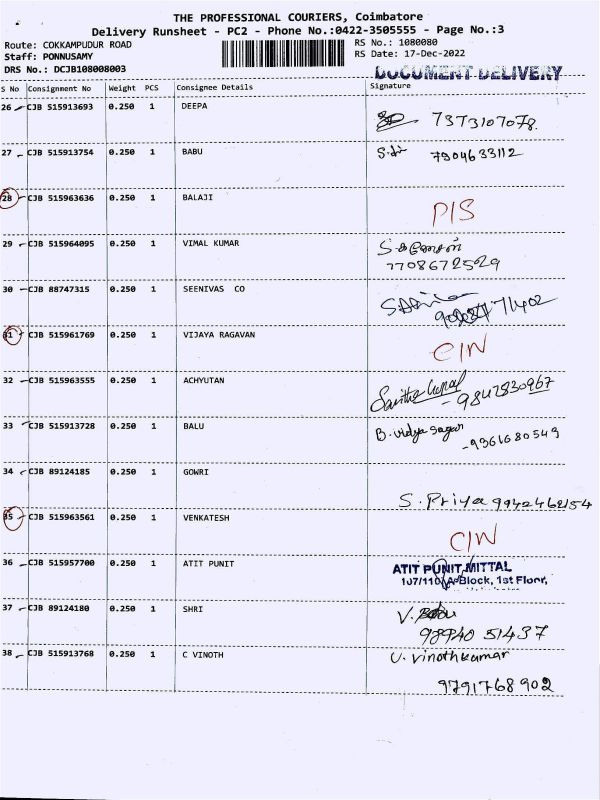 THE PROFESSIONAL COURIERS, Coimbatore
Delivery Runsheet - PC2 - Phone No.:0422-3505555 - Page No.:3
Route: COKKAMPUDUR ROAD
RS No.: 1080080
Staff: PONNUSAMY
RS Date: 17-Dec-2022
DRS No.: DCJB108008003
DOCUMENT DELIVERY
S No Consignment No Weight PCS Consignee Details Signature
26 CJB 515913693 0.250 1 DEEPA
7373107078.
27 CJB 515913754 0.250 1 BABU 7904633112
28 CJB 515963636 0.250 1 BALAJI
P/S
29 CJB 515964095 0.250 1 VIMAL KUMAR
7708672529
30 CJB 88747315 0.250 1 SEENIVAS CO
31 CJB 515961769 0.250 1 VIJAYA RAGAVAN
C/N
32 CJB 515963555 0.250 1 ACHYUTAN
- 9842830967
33 CJB 515913728 0.250 1 BALU B. vidya sagar
- 9361680549
34 CJB 89124185 0.250 1 GOWRI
S. Priya 9942462154
35 CJB 515963561 0.250 1 VENKATESH
C/N
36 CJB 515957700 0.250 1 ATIT PUNIT ATIT PUNIT MITTAL
107/110 A-Block, 1st Floor,
37 CJB 89124180 0.250 1 SHRI V.
98940 51437
38 CJB 515913768 0.250 1 C VINOTH U. vinothkumar
9791768902